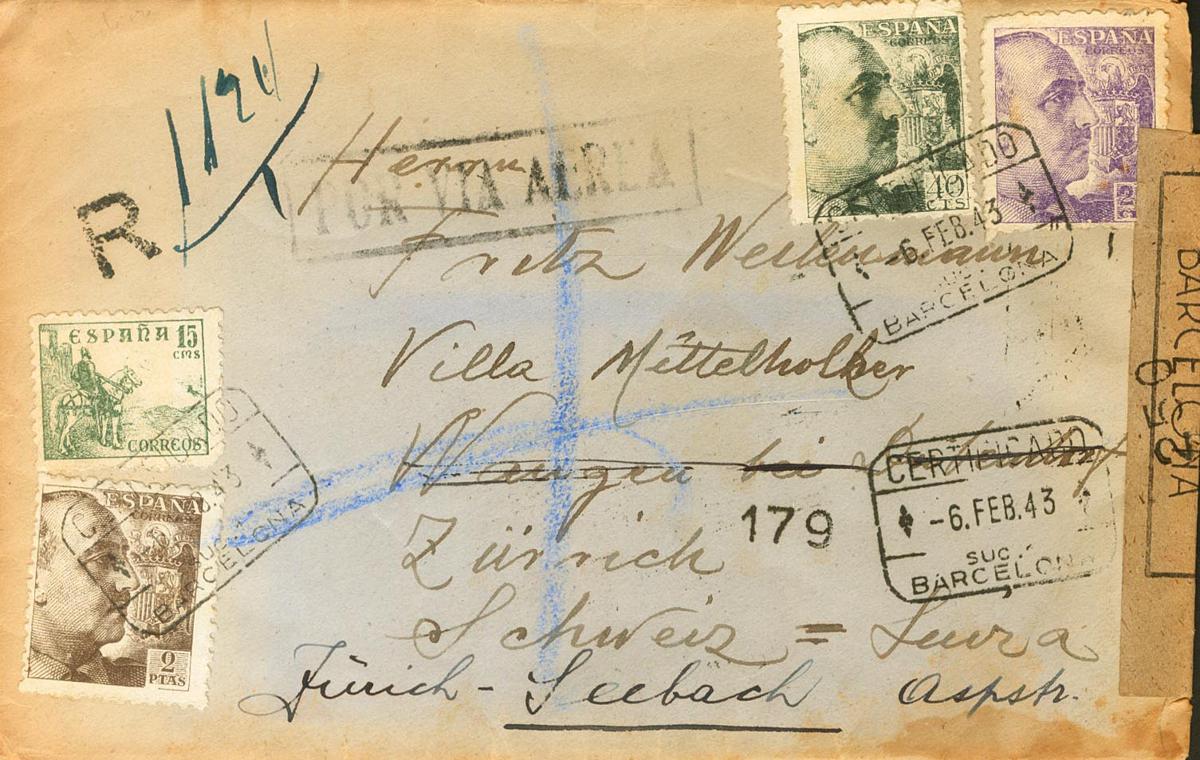 R
1124
Herrn
POR VIA AEREA
Fritz
Villa Mittelholzer
Wangen bei
Zürich
Schweiz = Suiza
Zürich - Seebach Aspstr.
ESPAÑA
CORREOS
40
CTS
ESPAÑA
CORREOS
CERTIFICADO
-6.FEB.43
SUC.
BARCELONA
ESPAÑA 15
CMS
CORREOS
ESPAÑA
CORREOS
2
PTAS
CERTIFICADO
43
BARCELONA
179
CERTIFICADO
-6.FEB.43
SUC.
BARCELONA
BARCELONA